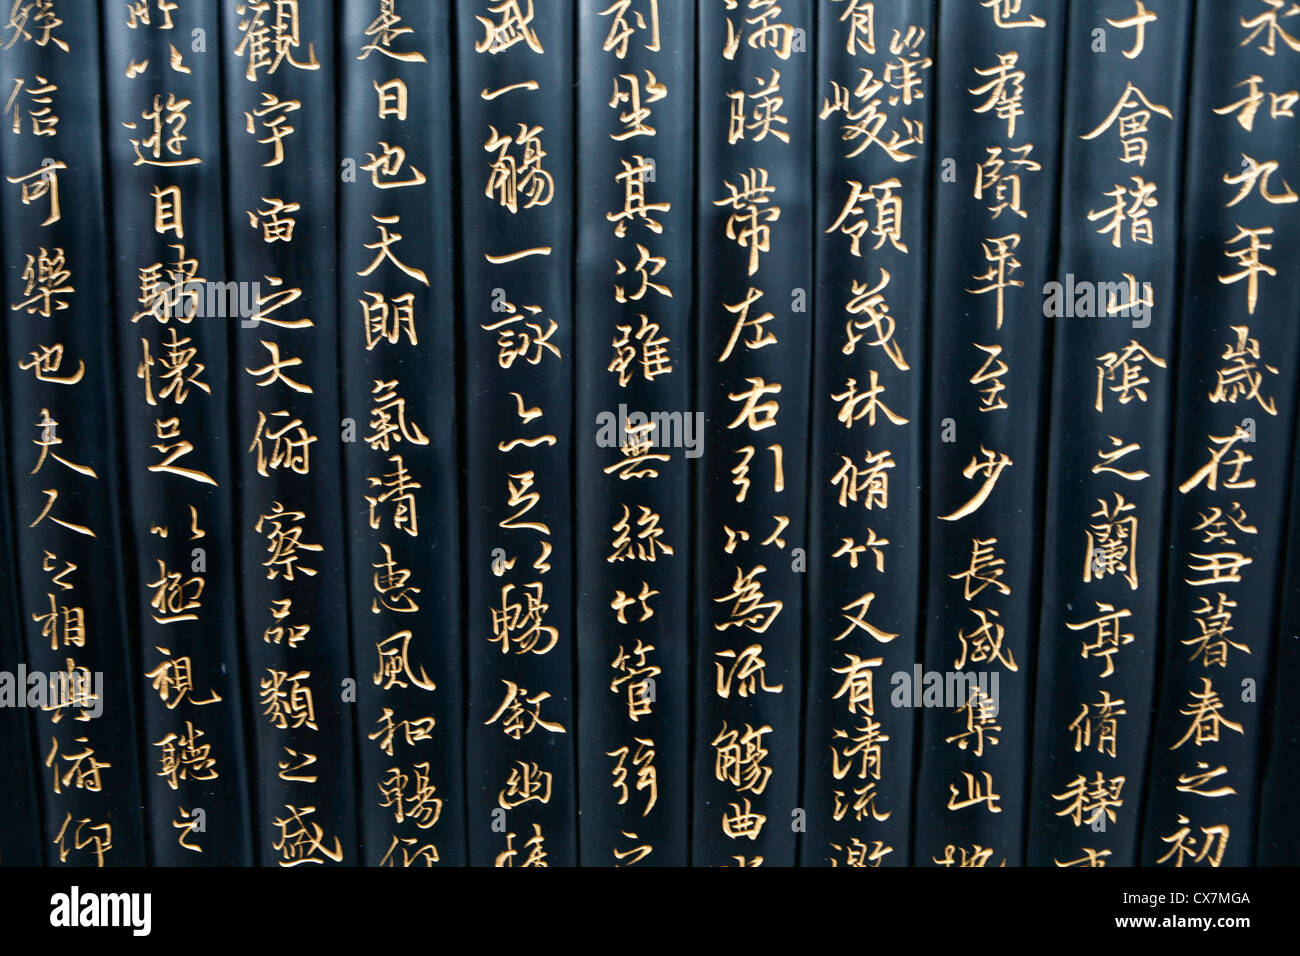 永和九年歲在癸丑暮春之初
于會稽山陰之蘭亭脩稧
也羣賢畢至少長咸集此地
有崇山峻領茂林脩竹又有清流激
湍暎帶左右引以為流觴曲
列坐其次雖無絲竹管弦之
盛一觴一詠亦足以暢敘幽情
是日也天朗氣清惠風和暢仰
觀宇宙之大俯察品類之盛
所以遊目騁懷足以極視聽之
娛信可樂也夫人之相與俯仰
alamy
Image ID: CX7MGA
www.alamy.com